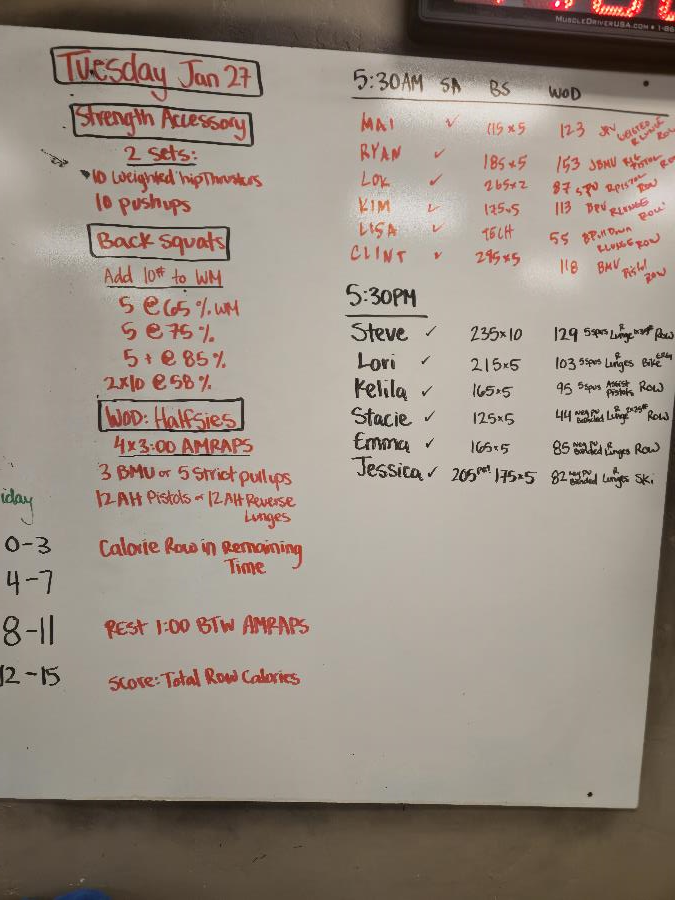 MUSCLEDRIVERUSA.COM • 1-8
Tuesday Jan 27
Strength Accessory
2 sets:
10 Weighted hip Thrusters
10 pushups
Back Squats
Add 10# to WM
5 @ 65 % WM
5 @ 75 %
5 + @ 85 %
2x10 @ 58 %
WOD: Halfsies
4 x 3:00 AMRAPS
3 BMU or 5 Strict pull ups
12 AH Pistols or 12 AH Reverse
Lunges
Calorie Row in Remaining
Time
REST 1:00 BTW AMRAPS
Score: Total Row Calories
iday
0-3
4-7
8-11
12-15
5:30AM SA BS WOD
MAI ✓ 115x5 123
RYAN ✓ 185x5 153 JBMU PISTOL ROW
LOK ✓ 265x2 87 SPU RPISTOL ROW
KIM ✓ 175x5 113 BPU RLUNGE ROW
LISA ✓ TECH 55 BPull Down RLUNGE ROW
CLINT ✓ 295x5 118 BMU Pistol ROW
5:30PM
Steve ✓ 235x10 129 5spus R Lunge Row
Lori ✓ 215x5 103 5spus R Lunges Bike
Kelila ✓ 165x5 95 5spus Assist Pistols Row
Stacie ✓ 125x5 44 Neg PU Banded R Lunge 2x25# Row
Emma ✓ 165x5 85 Neg PU Banded R Lunges Row
Jessica ✓ 205 175x5 82 Neg PU Banded R Lunges Ski